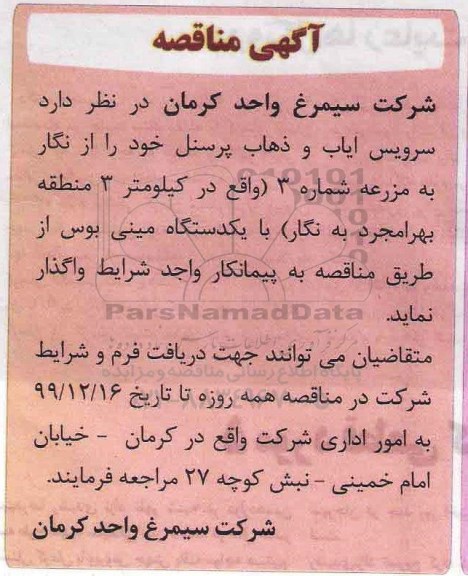 آگهی مناقصه
شرکت سیمرغ واحد کرمان در نظر دارد
سرویس ایاب و ذهاب پرسنل خود را از نگار
به مزرعه شماره ۳ (واقع در کیلومتر ۳ منطقه
بهرامجرد به نگار) با یکدستگاه مینی بوس از
طریق مناقصه به پیمانکار واجد شرایط واگذار
نماید.
ParsNamadData
متقاضیان می توانند جهت دریافت فرم و شرایط
پایگاه اطلاع رسانی مناقصه و مزایده
شرکت در مناقصه همه روزه تا تاریخ ۹۹/۱۲/۱۶
به امور اداری شرکت واقع در کرمان - خیابان
امام خمینی - نبش کوچه ۲۷ مراجعه فرمایند.
شرکت سیمرغ واحد کرمان